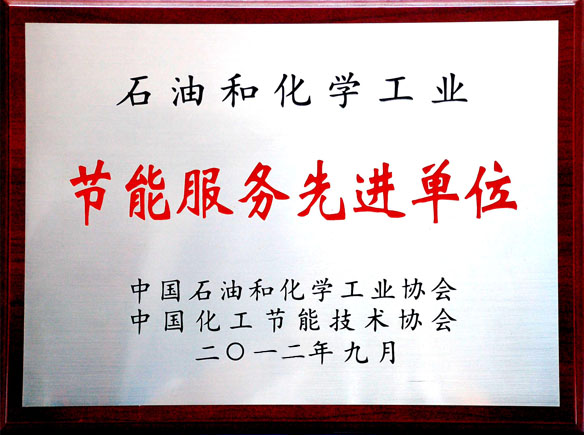 石油和化学工业
节能服务先进单位
中国石油和化学工业协会
中国化工节能技术协会
二〇一二年九月